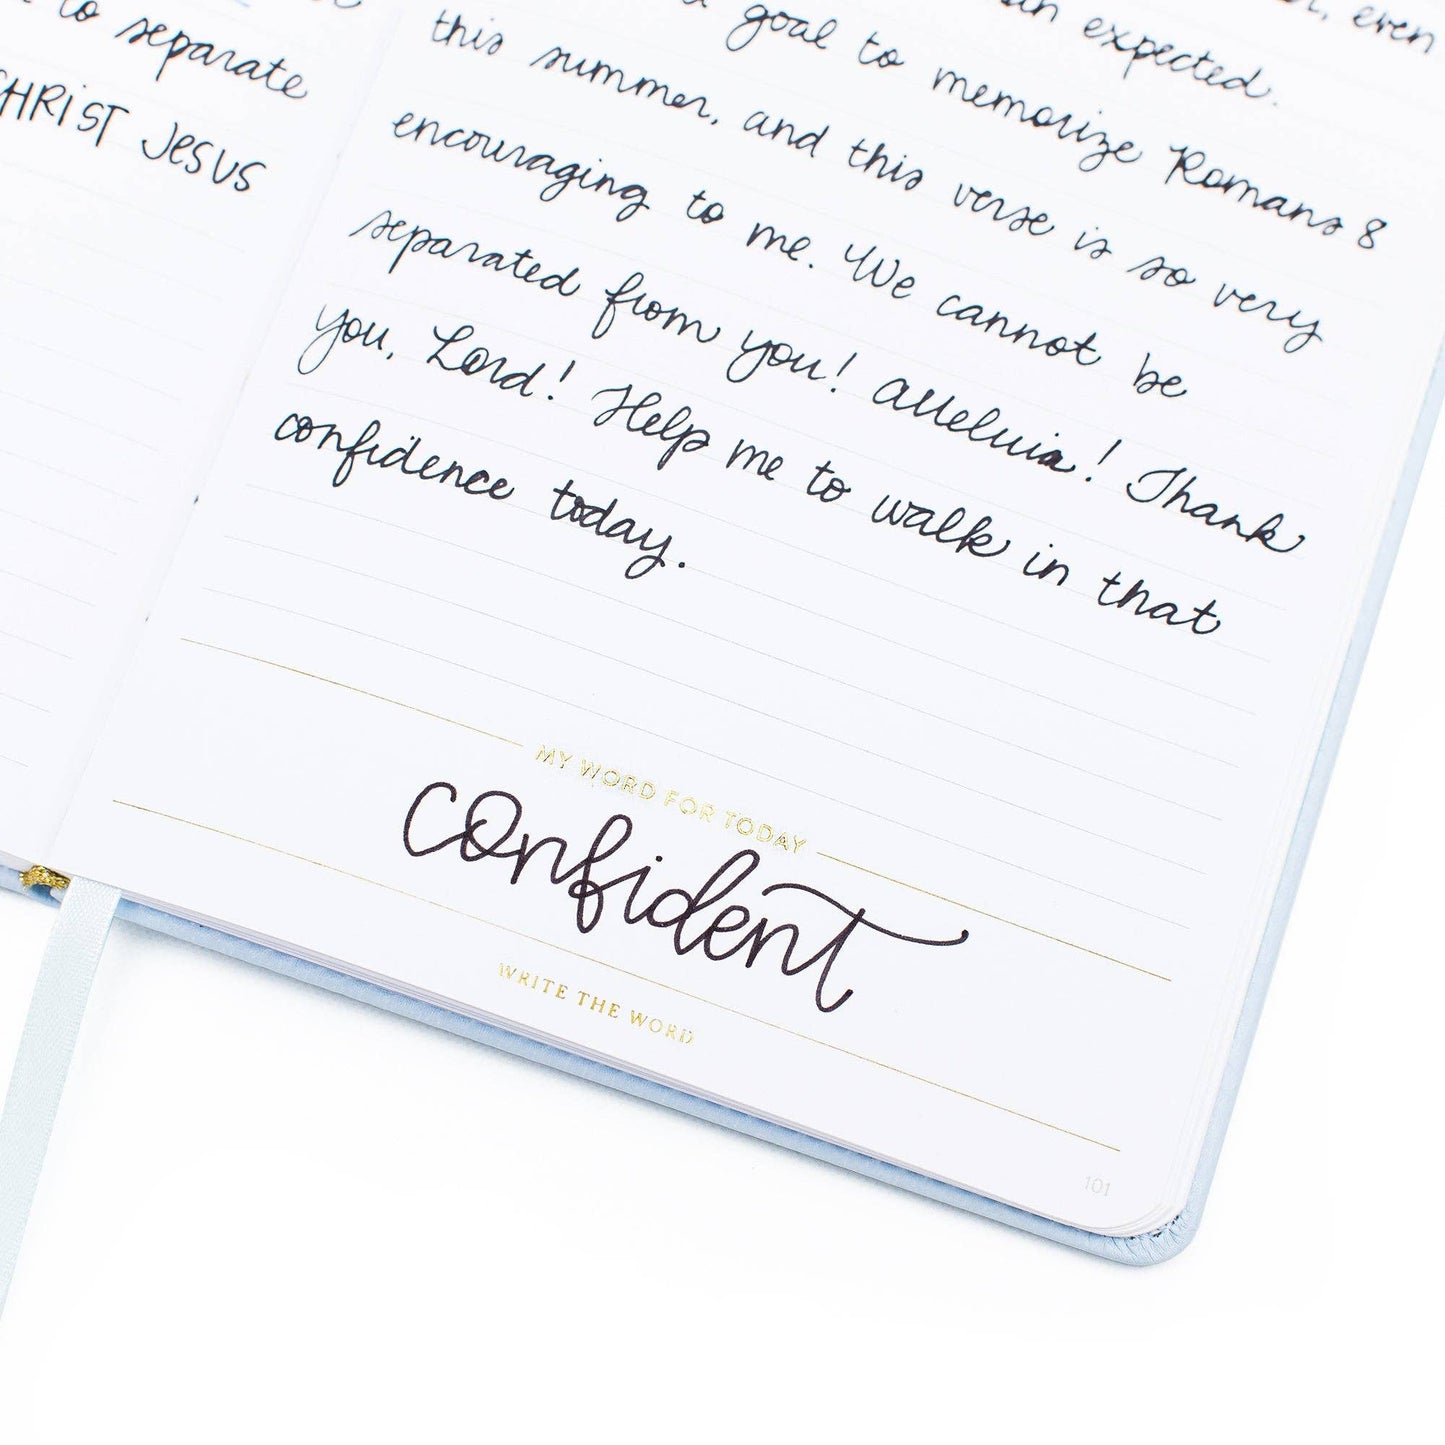 to separate
CHRIST JESUS
even
expected.
goal to memorize Romans 8
this summer, and this verse is so very
encouraging to me. We cannot be
separated from you! Alleluia! Thank
you, Lord! Help me to walk in that
confidence today.
MY WORD FOR TODAY
confident
WRITE THE WORD
101